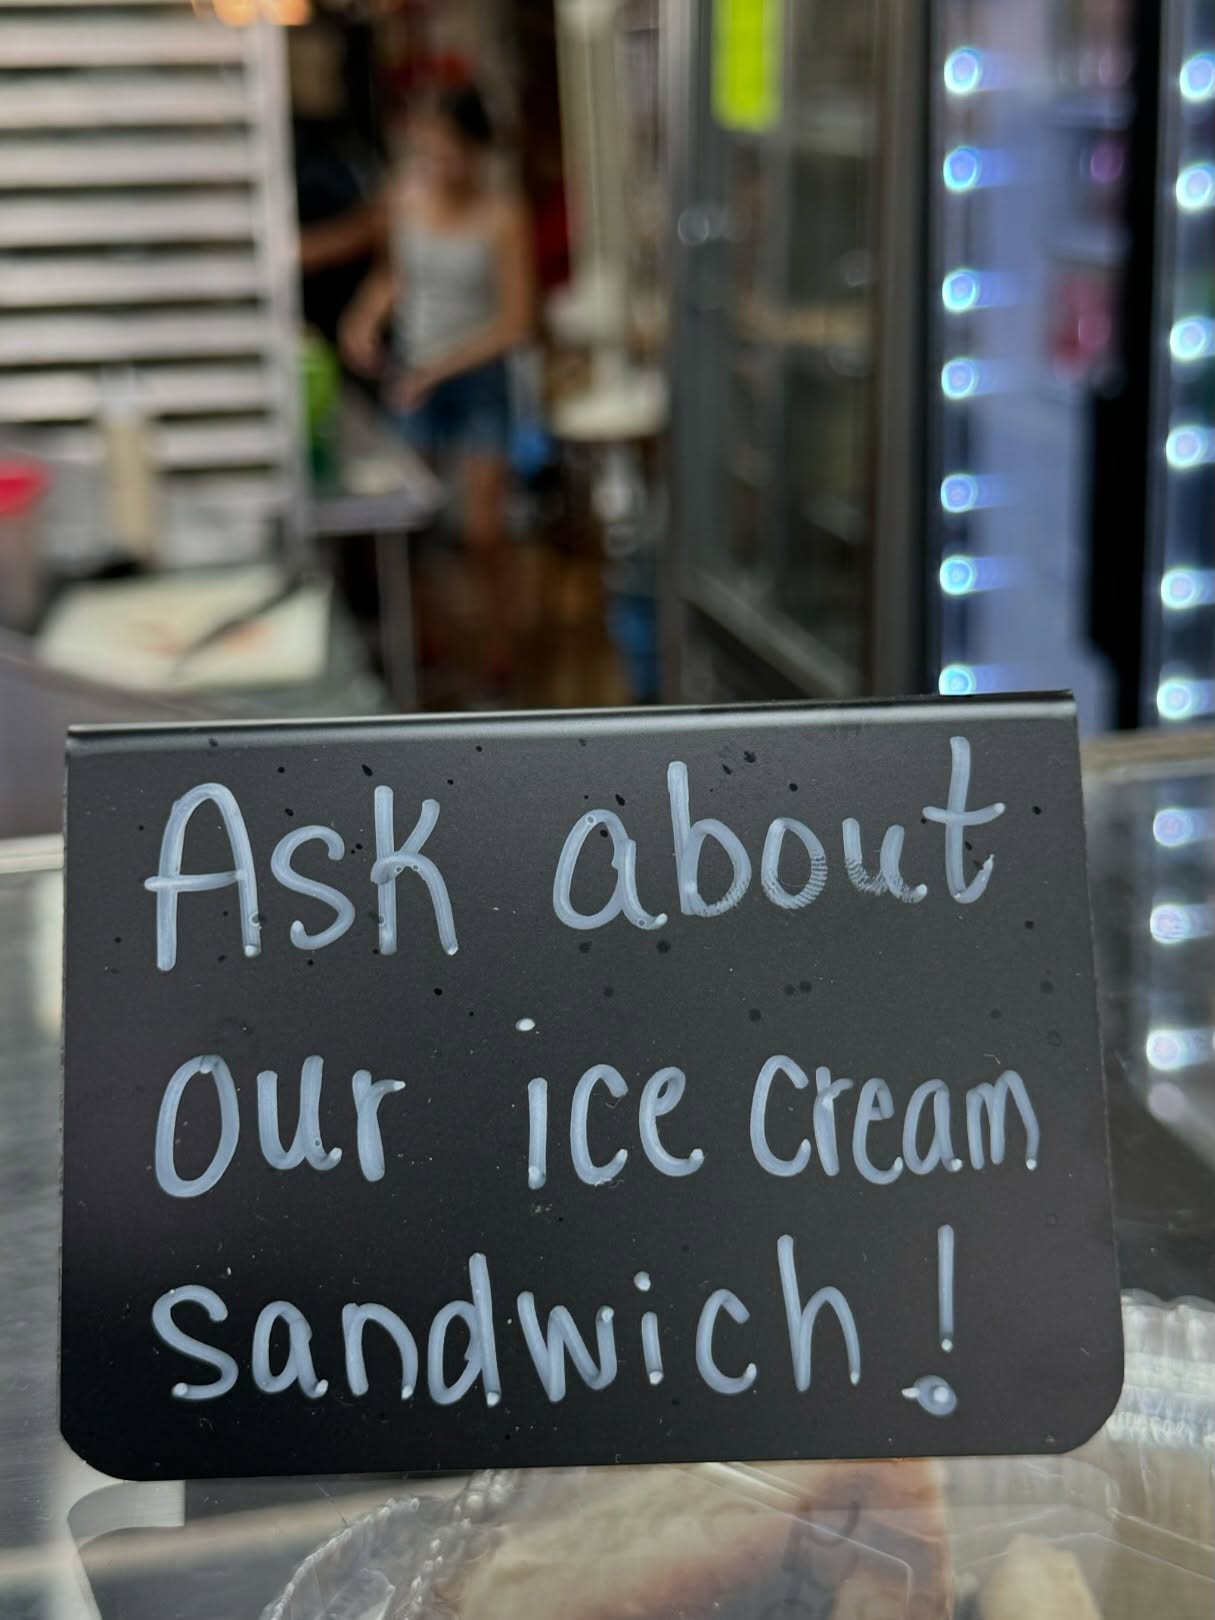 Ask about
our ice cream
sandwich!